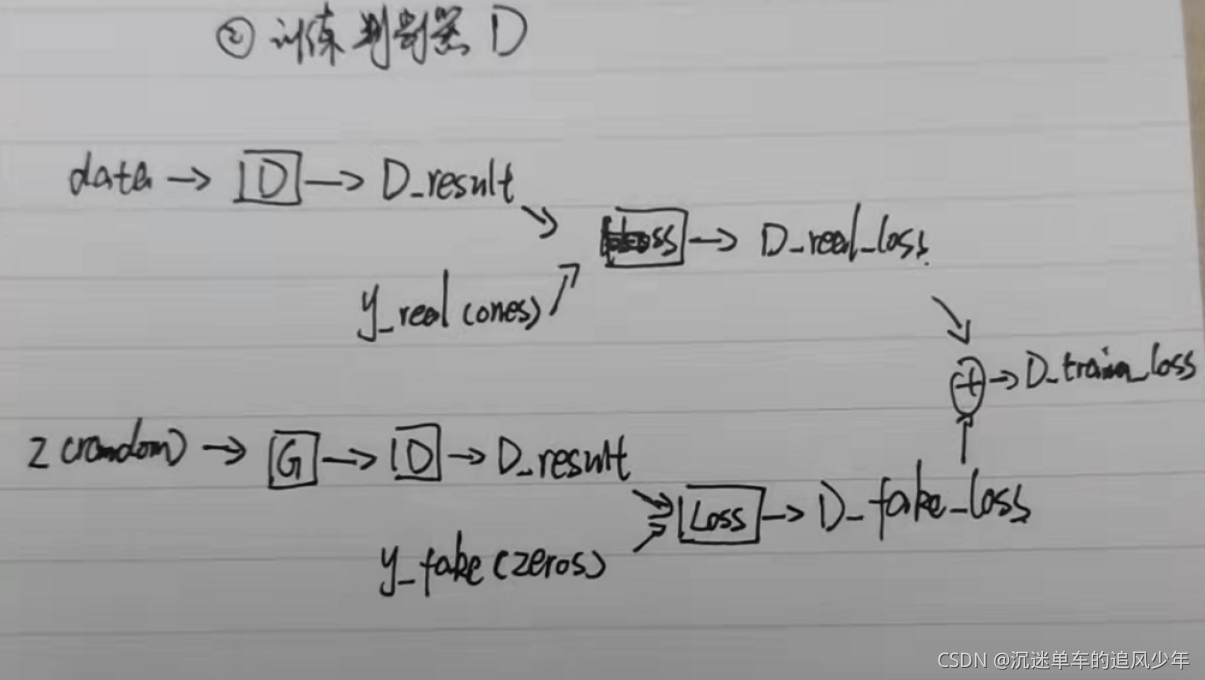 ② 训练判别器 D
data → D → D_result
Loss → D_real_loss
y_real (ones)
+ → D_train_loss
z (random) → G → D → D_result
Loss → D_fake_loss
y_fake (zeros)
CSDN @沉迷单车的追风少年